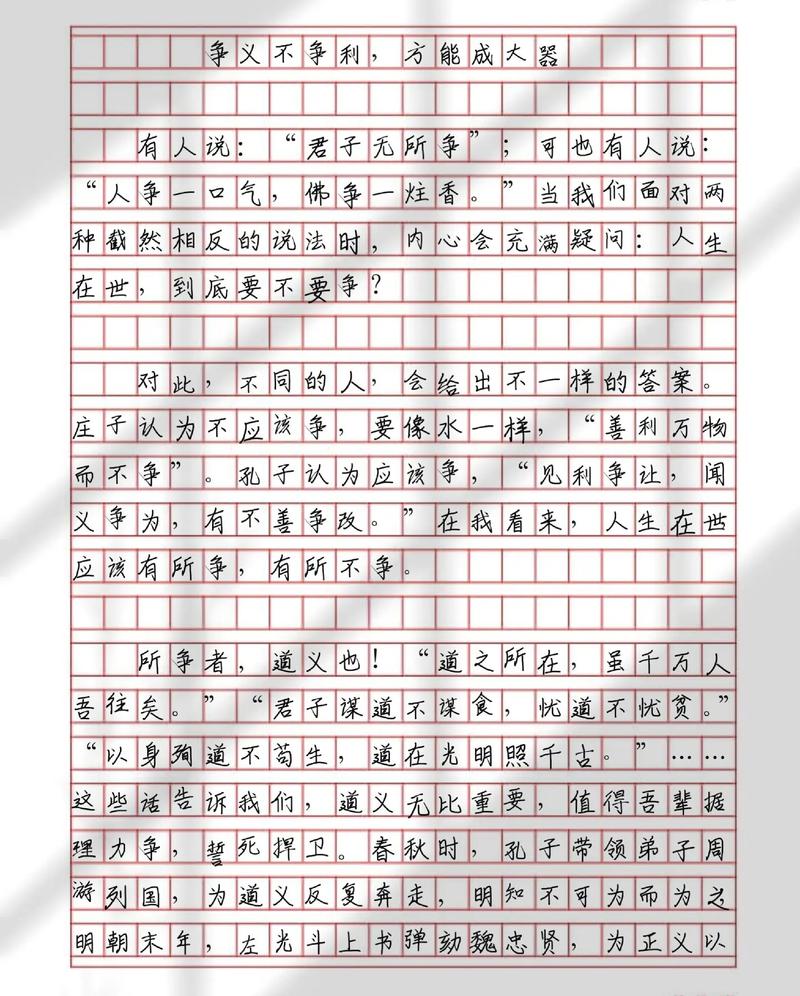 争义不争利，方能成大器
有人说：“君子无所争”；可也有人说：
“人争一口气，佛争一炷香。”当我们面对两
种截然相反的说法时，内心会充满疑问：人生
在世，到底要不要争？
对此，不同的人，会给出不一样的答案。
庄子认为不应该争，要像水一样，“善利万物
而不争”。孔子认为应该争，“见利争让，闻
义争为，有不善争改。”在我看来，人生在世
应该有所争，有所不争。
所争者，道义也！“道之所在，虽千万人
吾往矣。”“君子谋道不谋食，忧道不忧贫。”
“以身殉道不苟生，道在光明照千古。”……
这些话告诉我们，道义无比重要，值得吾辈据
理力争，誓死捍卫。春秋时，孔子带领弟子周
游列国，为道义反复奔走，明知不可为而为之
明朝末年，左光斗上书弹劾魏忠贤，为正义以